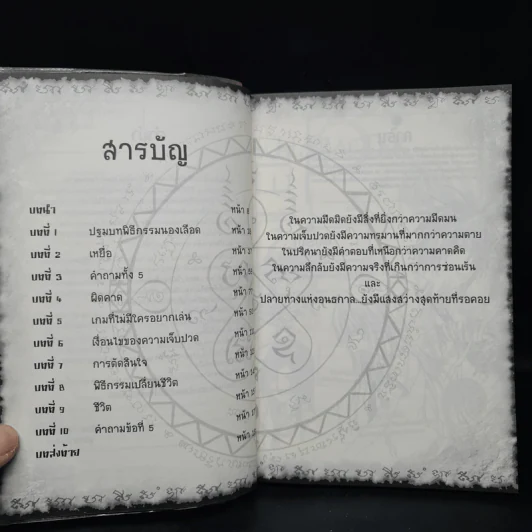 สารบัญ
บทนำ หน้า
บทที่ 1 ปฐมบทพิธีกรรมนองเลือด หน้า
บทที่ 2 เหยื่อ หน้า
บทที่ 3 คำถามทั้ง 5 หน้า
บทที่ 4 ผิดคาด หน้า
บทที่ 5 เกมที่ไม่มีใครอยากเล่น หน้า
บทที่ 6 เงื่อนไขของความเจ็บปวด หน้า
บทที่ 7 การตัดสินใจ หน้า
บทที่ 8 พิธีกรรมเปลี่ยนชีวิต หน้า
บทที่ 9 ชีวิต หน้า
บทที่ 10 คำถามข้อที่ 5 หน้า
บทส่งท้าย
ในความมืดมิดยังมีสิ่งที่ยิ่งกว่าความมืดมน
ในความเจ็บปวดยังมีความทรมานที่มากกว่าความตาย
ในปริศนายังมีคำตอบที่เหนือกว่าความคาดคิด
ในความลึกลับยังมีความจริงที่เกินกว่าการซ่อนเร้น
และ
ปลายทางแห่งอนธกาล..ยังมีแสงสว่างสุดท้ายที่รอคอย